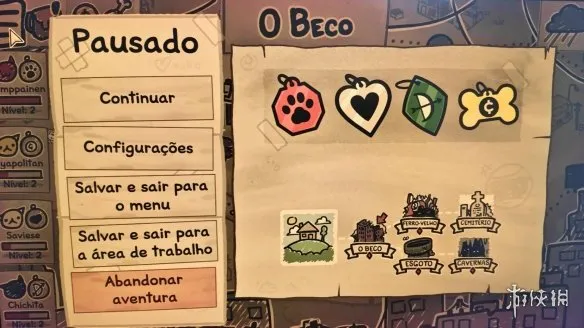 O BECO
Pausado
Continuar
Configurações
Salvar e sair para
o menu
Salvar e sair para
a área de trabalho
Abandonar
aventura
mppainen
Nível: 2
yapolitan
Nível: 2
Saviese
Nível: 2
Chichita
Nível: 2
C
O BECO
FERRO-VELHO
CEMITÉRIO
ESGOTO
CAVERNAS
游侠网